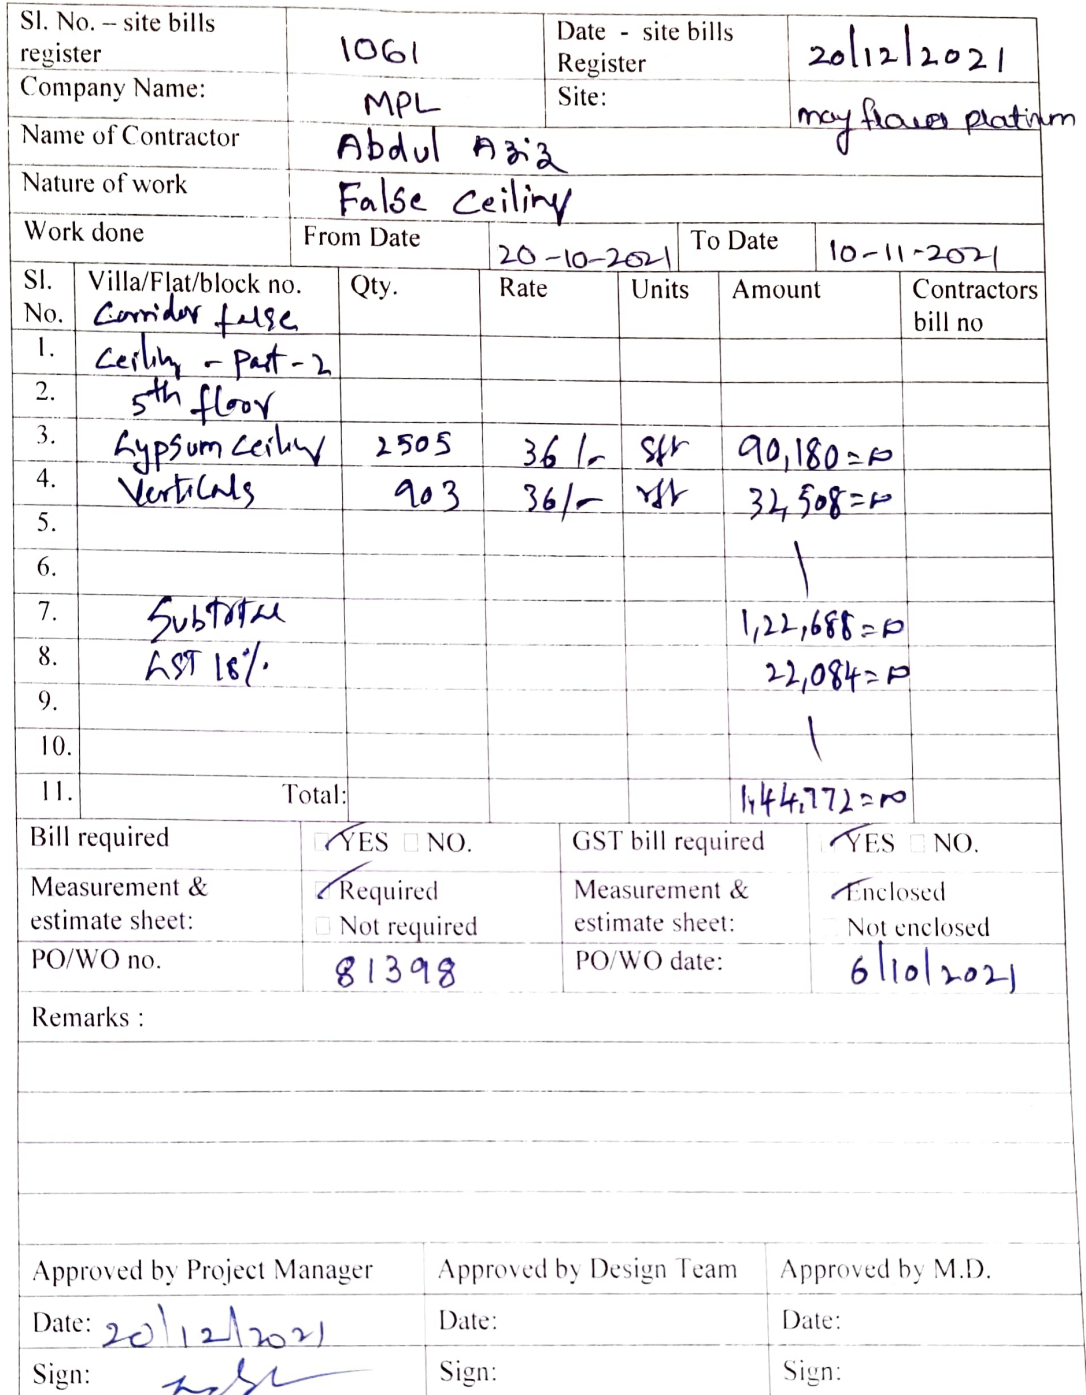 Sl. No. – site bills register 1061 Date - site bills Register 20/12/2021
Company Name: MPL Site: may flower platinum
Name of Contractor Abdul Aziz
Nature of work False ceiling
Work done From Date 20-10-2021 To Date 10-11-2021
Sl. No. Villa/Flat/block no. Qty. Rate Units Amount Contractors bill no
Corridor false
1. ceiling - Part-2
2. 5th floor
3. Gypsum ceiling 2505 36/- sft 90,180=00
4. Verticals 903 36/- rft 32,508=00
5.
6.
7. Subtotal 1,22,688=00
8. GST 18% 22,084=00
9.
10.
11. Total: 1,44,772=00
Bill required YES NO. GST bill required YES NO.
Measurement & estimate sheet: Required Not required Measurement & estimate sheet: Enclosed Not enclosed
PO/WO no. 81398 PO/WO date: 6/10/2021
Remarks :
Approved by Project Manager Approved by Design Team Approved by M.D.
Date: 20/12/2021 Date: Date:
Sign: Sign: Sign: